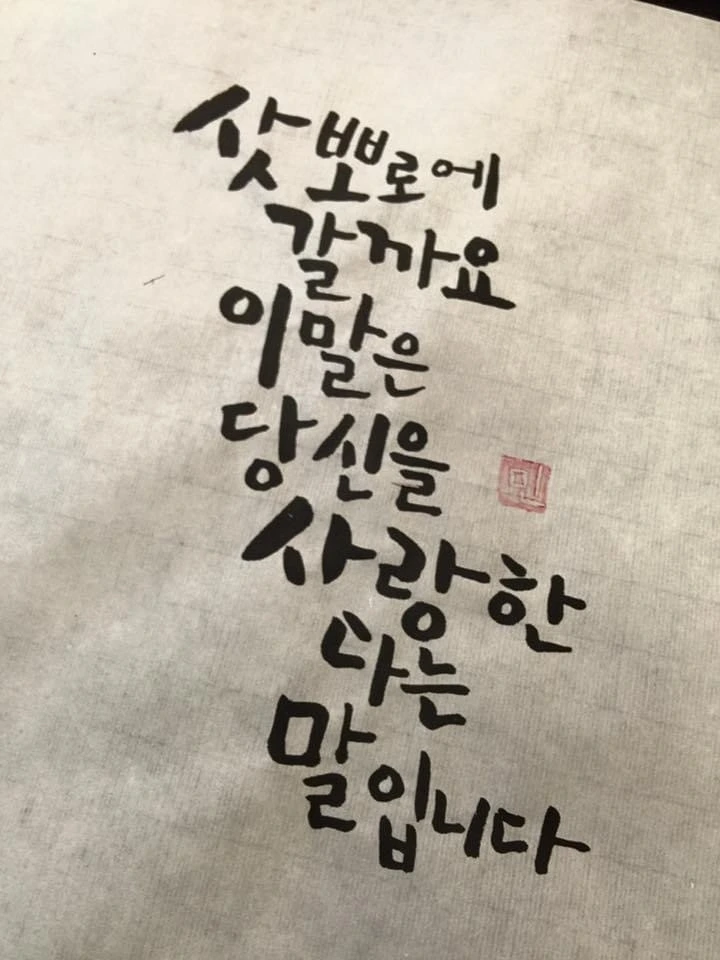 삿뽀로에
갈까요
이말은
당신을
사랑한
다는
말입니다
민